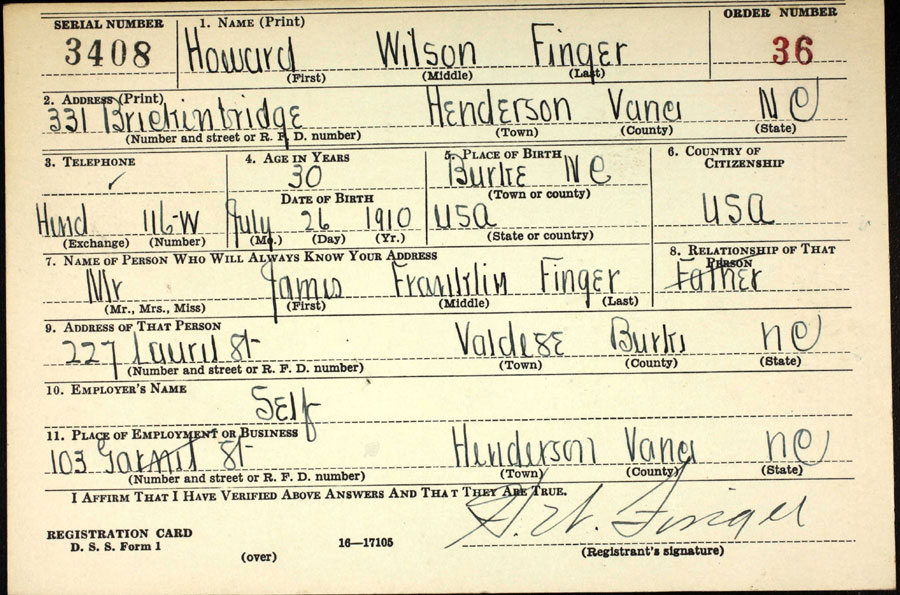 SERIAL NUMBER 1. NAME (Print) ORDER NUMBER
3408 Howard Wilson Finger 36
(First) (Middle) (Last)
2. ADDRESS (Print)
331 Brickinbridge Henderson Vance NC
(Number and street or R. F. D. number) (Town) (County) (State)
3. TELEPHONE 4. AGE IN YEARS 5. PLACE OF BIRTH 6. COUNTRY OF CITIZENSHIP
30 Burke NC
DATE OF BIRTH (Town or county)
Hend 116-W July 26 1910 USA USA
(Exchange) (Number) (Mo.) (Day) (Yr.) (State or country)
7. NAME OF PERSON WHO WILL ALWAYS KNOW YOUR ADDRESS 8. RELATIONSHIP OF THAT PERSON
Mr James Franklin Finger Father
(Mr., Mrs., Miss) (First) (Middle) (Last)
9. ADDRESS OF THAT PERSON
227 Laurel St Valdese Burke NC
(Number and street or R. F. D. number) (Town) (County) (State)
10. EMPLOYER'S NAME
Self
11. PLACE OF EMPLOYMENT OR BUSINESS
103 Garnet St Henderson Vance NC
(Number and street or R. F. D. number) (Town) (County) (State)
I AFFIRM THAT I HAVE VERIFIED ABOVE ANSWERS AND THAT THEY ARE TRUE.
H. W. Finger
REGISTRATION CARD
D. S. S. Form 1 (over) 16—17105 (Registrant's signature)